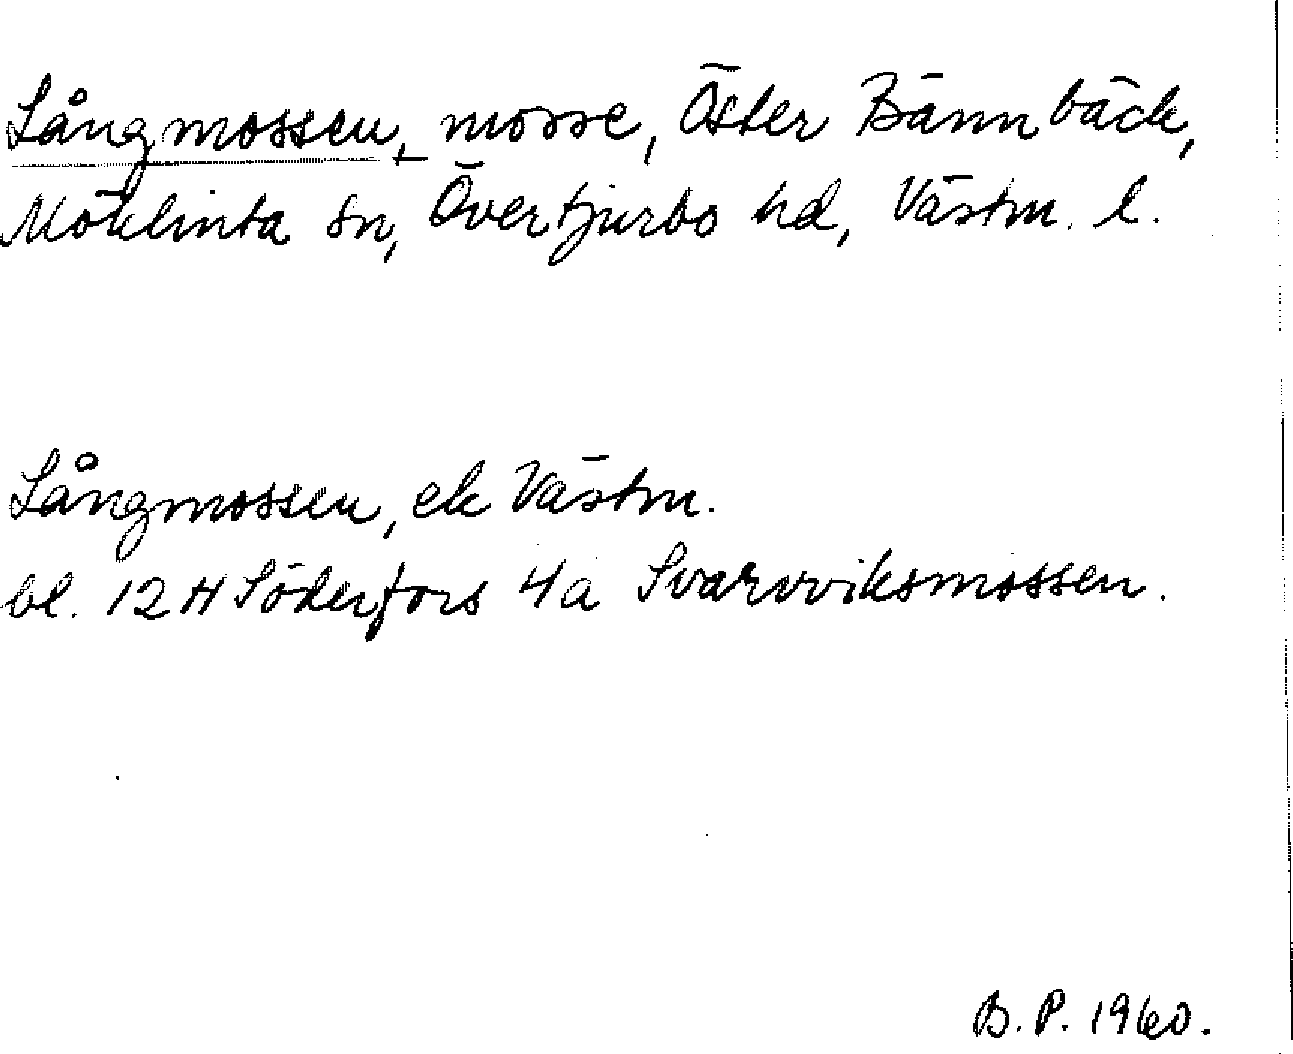 Långmossen, mosse, Öster Bännbäck,
Möklinta sn, Övertjurbo hd, Västm. l.
Långmossen, ek Västm.
bl. 12 H Söderfors 4a Svarvviksmossen.
B. P. 1960.